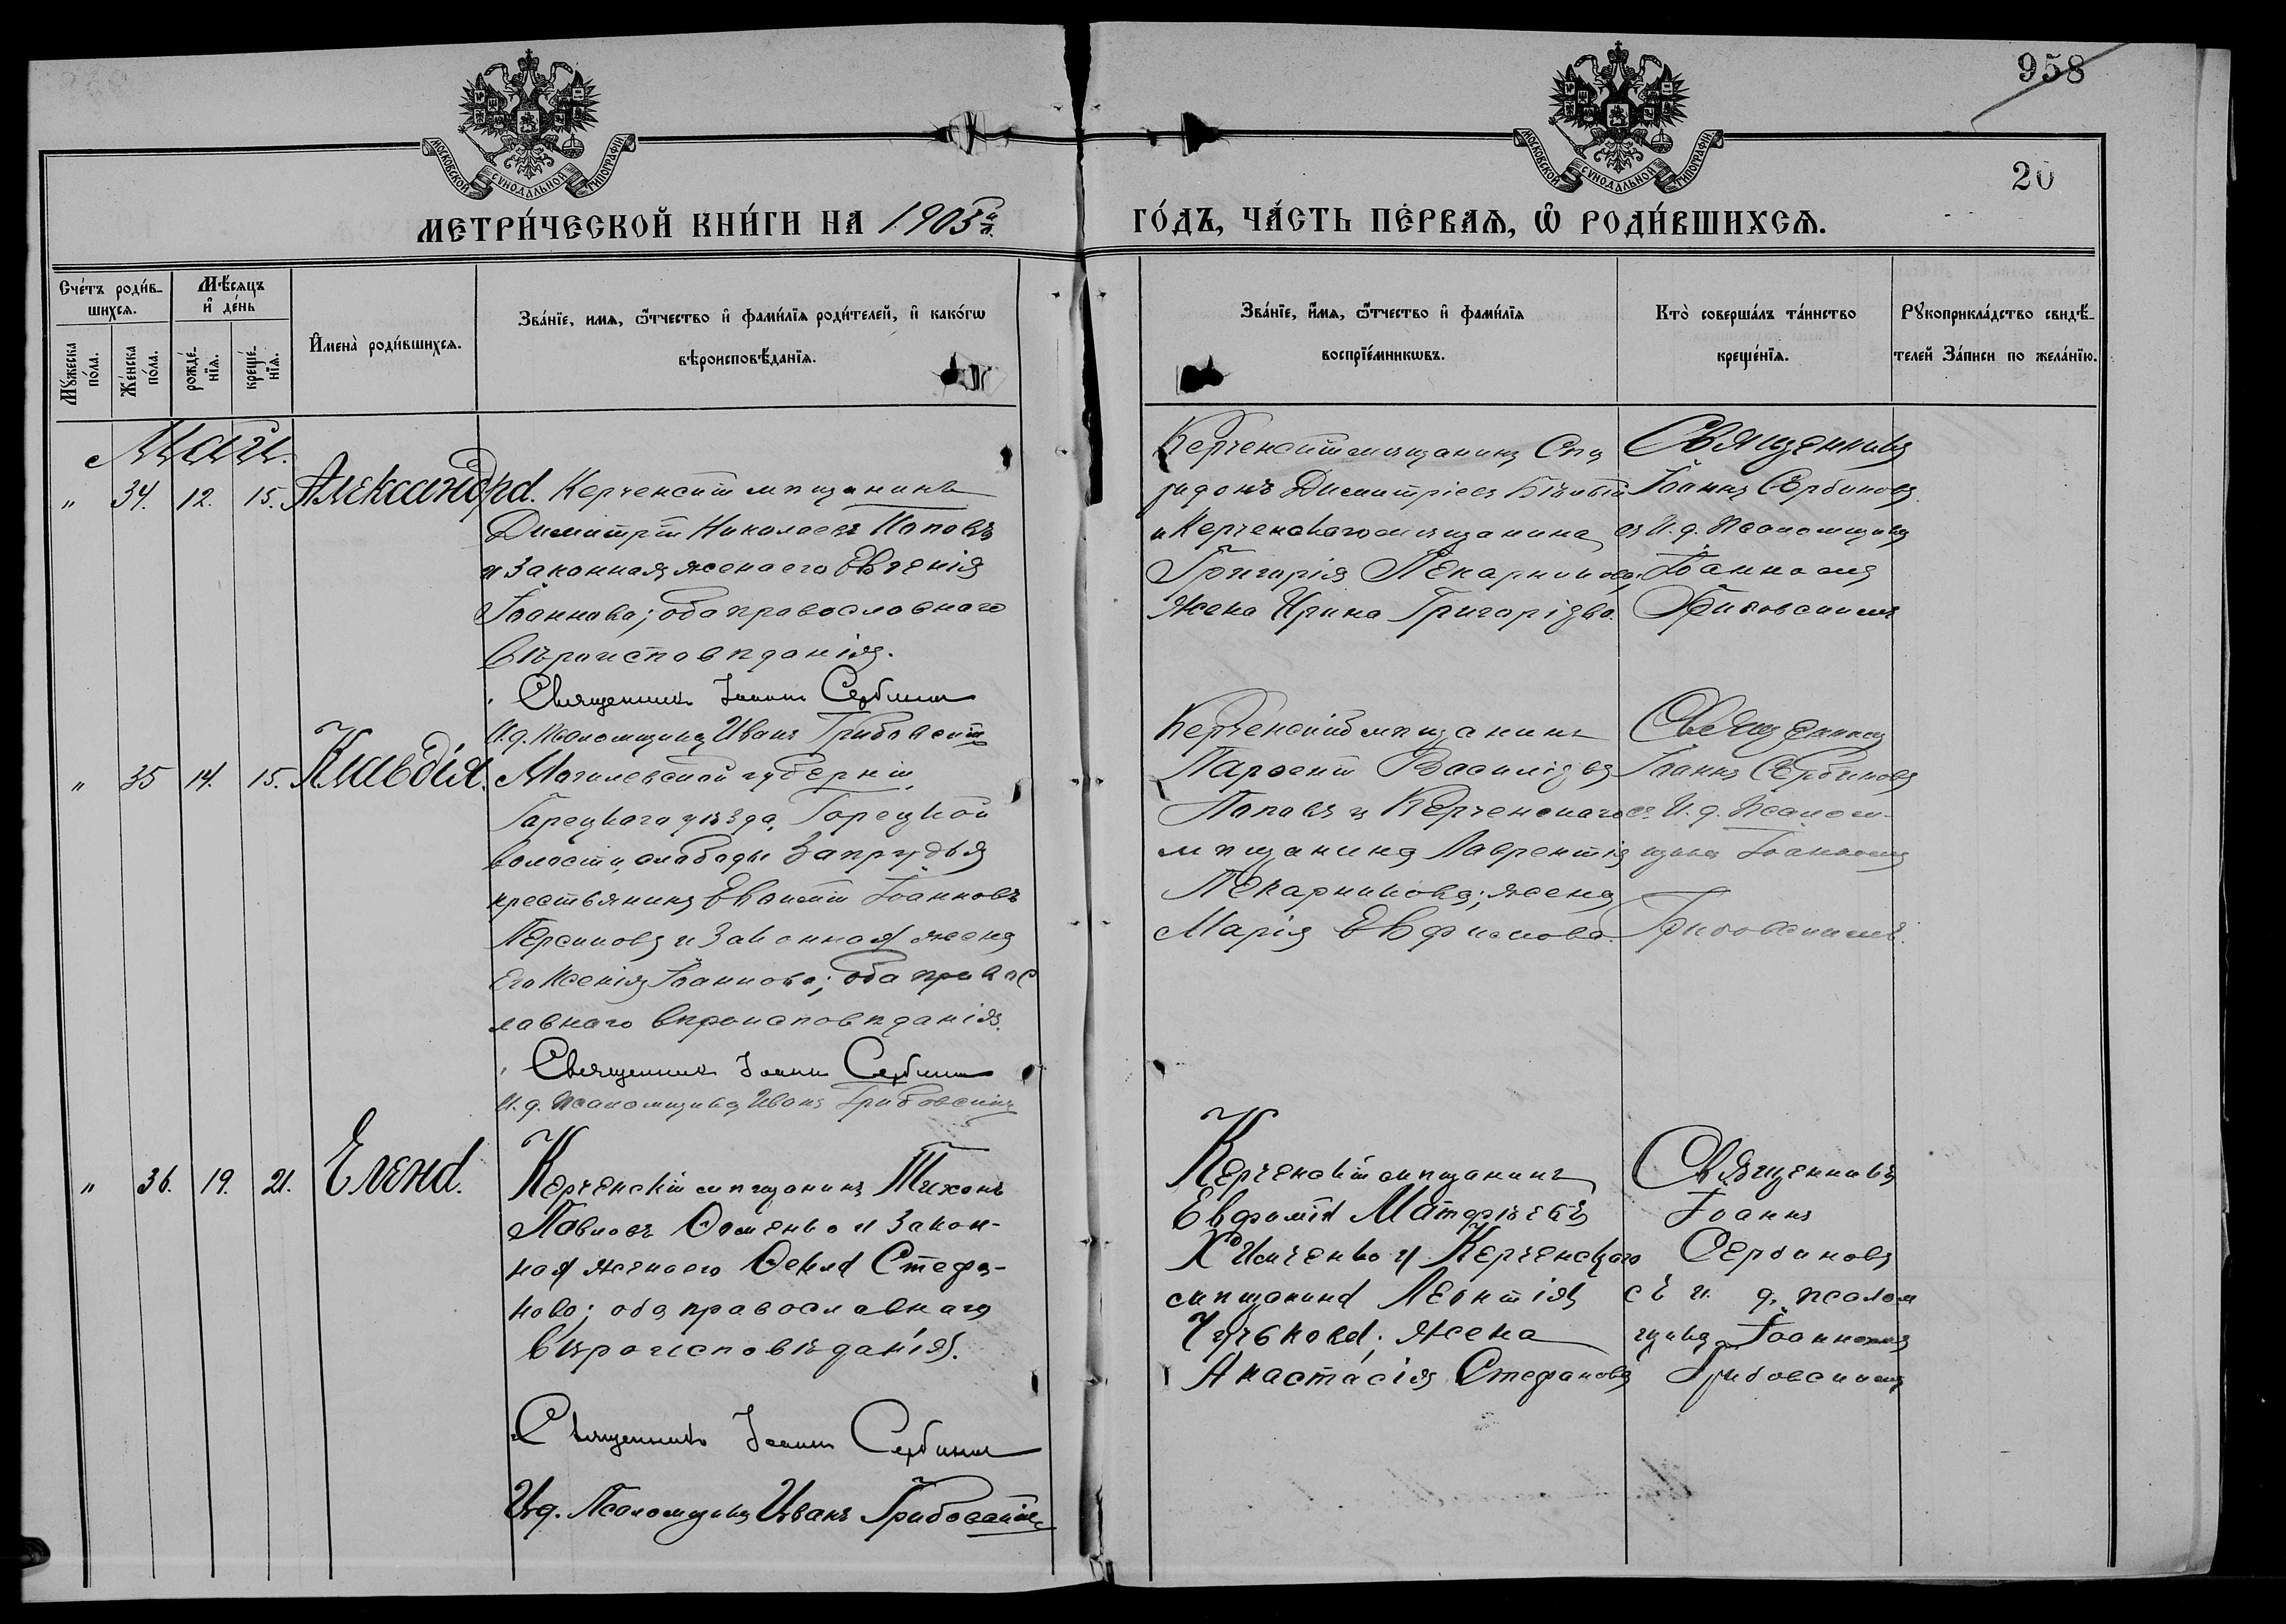 958
20
МОСКОВСКОЙ СѴНОДАЛЬНОЙ ТИПОГРАФІИ
МОСКОВСКОЙ СѴНОДАЛЬНОЙ ТИПОГРАФІИ
МЕТРИ́ЧЕСКОЙ КНИ́ГИ НА 1903й
ГО́ДЪ, ЧА́СТЬ ПЕ́РВАѦ, Ѽ РОДИ́ВШИХСѦ.
Сче́тъ роди́в-
шихсѧ.
Мѣ́сѧцъ
и҆ де́нь
Мꙋ́жеска по́ла.
Же́нска по́ла.
рожде́-нїѧ.
креще́-нїѧ.
И҆мена̀ роди́вшихсѧ.
Зва́нїе, имѧ, ѻ҆́тчество и҆ фами́лїѧ роди́телей, и҆ како́гѡ
вѣроисповѣ́данїѧ.
Зва́нїе, и҆́мѧ, ѻ҆́тчество и҆ фами́лїѧ
воспрїе́мникѡвъ.
Кто̀ соверша́лъ та́инство
креще́нїѧ.
Рꙋкоприкла́дство свидѣ́-
телей За́писи по жела́нїю.
Май.
" 34. 12. 15. Александра. Керченскій мѣщанинъ
Димитрій Николаевъ Поповъ
и законная жена его Евгенія
Іоаннова; оба православнаго
вѣроисповѣданія.
Священникъ Іоаннъ Сербиновъ
И. д. Псаломщика Иванъ Грибовскій
Керченскій мѣщанинъ Спи
ридонъ Димитріевъ Бѣлый
и Керченскаго мѣщанина
Григорія Пекарникова,
жена Ирина Григоріева.
Священникъ
Іоаннъ Сербиновъ
съ И. д. Псаломщика
Іоанномъ
Грибовскимъ
" 35 14. 15. Клавдія. Могилевской губерніи,
Горецкаго уѣзда, Горецкой
волости, слободы Запрудья
крестьянинъ Евѳимій Іоанновъ
и законная жена
Его Ксенія Іоаннова; оба правос
лавнаго вѣроисповѣданія.
Священникъ Іоаннъ Сербиновъ
И. д. Псаломщика Иванъ Грибовскій
Керченскій мѣщанинъ
Парѳеній Василіевъ
Поповъ и Керченскаго
мѣщанина Лаврентія
Пекарникова; жена
Марія Евфимова.
Священникъ
Іоаннъ Сербиновъ
съ И. д. Псалом-
щика Іоанномъ
Грибовскимъ.
" 36. 19. 21. Елена. Керченскій мѣщанинъ Тихонъ
Павловъ и закон-
ная жена его Ѳекла Стефа-
нова; оба православнаго
вѣроисповѣданія.
Священникъ Іоаннъ Сербиновъ
И. д. Псаломщика Иванъ Грибовскій
Керченскій мѣщанинъ
Евфимій Матфѣевъ
и Керченскаго
мѣщанина Леонтія
жена
Анастасія Стефанова
Священникъ
Іоаннъ
Сербиновъ
съ и. д. псалом
щика Іоанномъ
Грибовскимъ